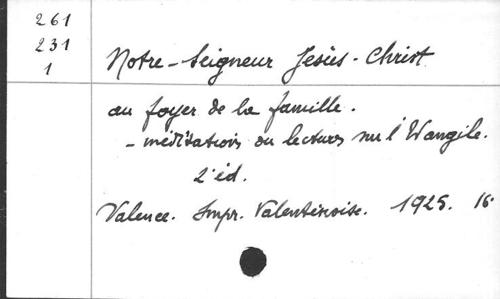 261
231
1
Notre-Seigneur Jesùs-Christ
au foyer de la famille.
- méditations ou lectures sur l'Evangile.
2e éd.
Valence. Impr. Valentinoise. 1925. 16